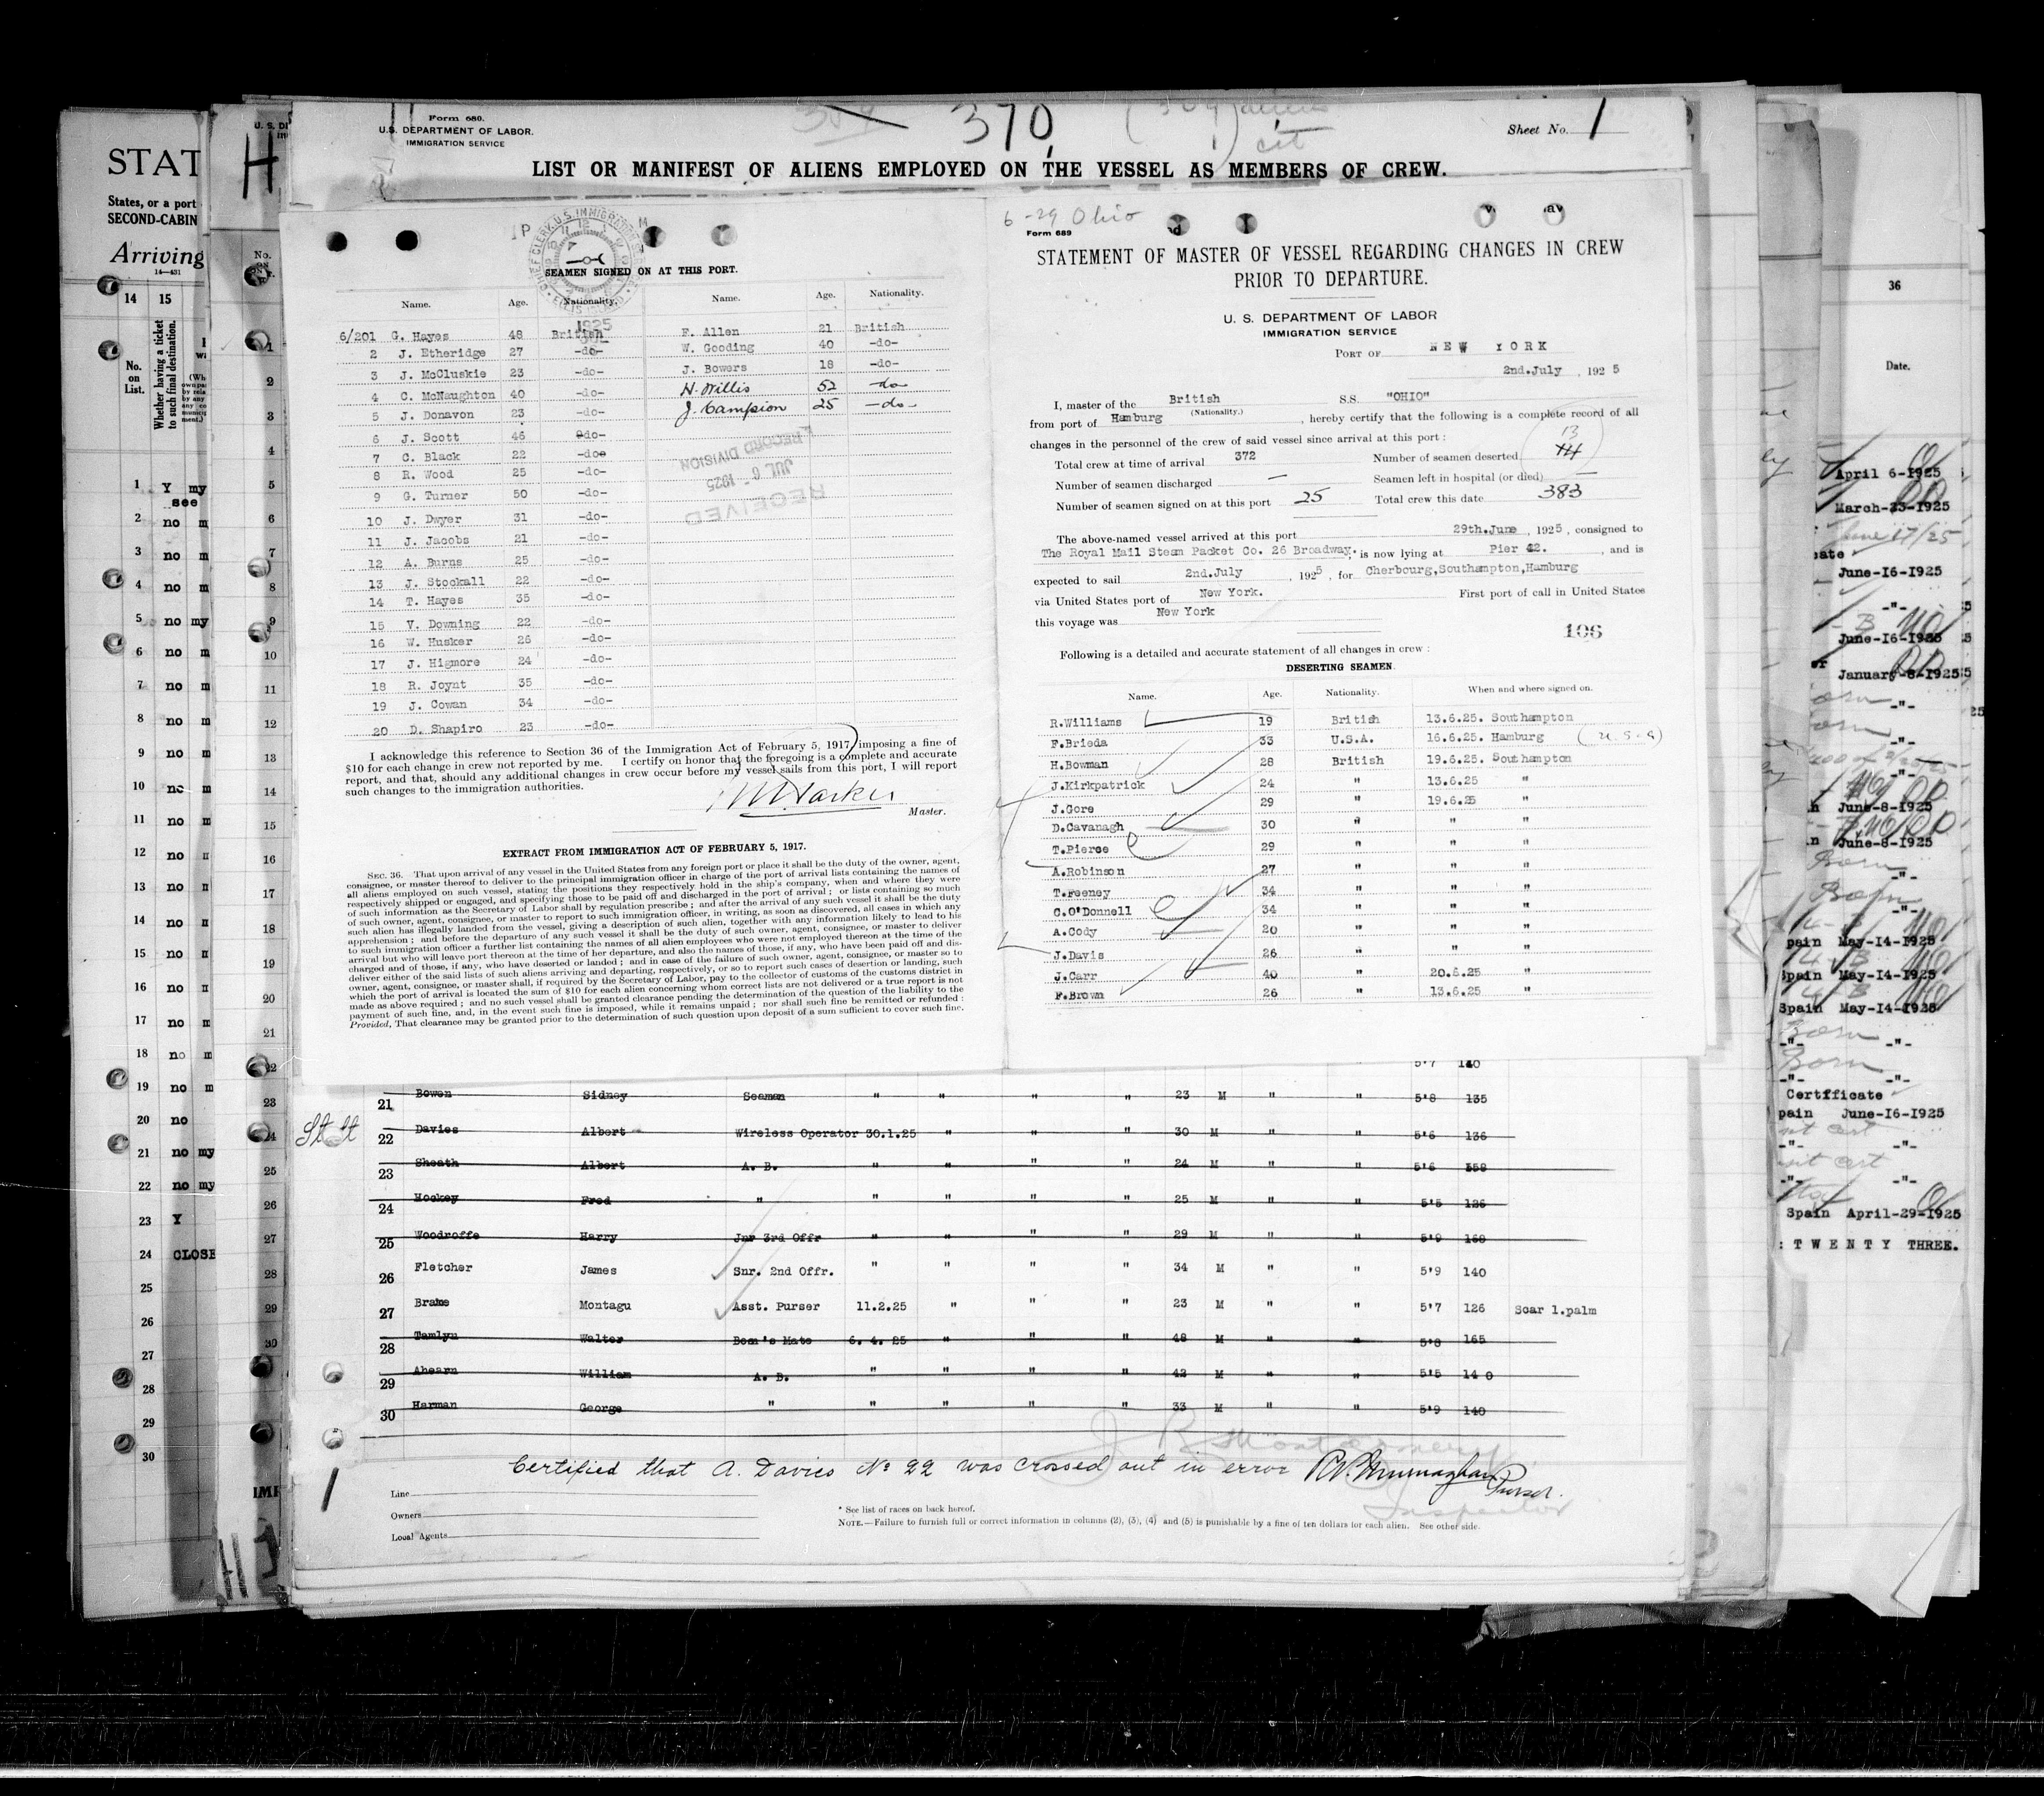 Form 680.
U.S. DEPARTMENT OF LABOR.
IMMIGRATION SERVICE
370
Sheet No. 1
LIST OR MANIFEST OF ALIENS EMPLOYED ON THE VESSEL AS MEMBERS OF CREW.
SEAMEN SIGNED ON AT THIS PORT.
Name. Age. Nationality. Name. Age. Nationality.
6/201 G. Hayes 48 British F. Allen 21 British
2 J. Etheridge 27 -do- W. Gooding 40 -do-
3 J. McCluskie 23 -do- J. Bowers 18 -do-
4 C. McNaughton 40 -do- H. Willis 52 -do-
5 J. Donavon 23 -do- J. Campion 25 -do-
6 J. Scott 46 -do-
7 C. Black 22 -do-
8 R. Wood 25 -do-
9 G. Turner 50 -do-
10 J. Dwyer 31 -do-
11 J. Jacobs 21 -do-
12 A. Burns 25 -do-
13 J. Stockall 22 -do-
14 T. Hayes 35 -do-
15 V. Downing 22 -do-
16 W. Husker 26 -do-
17 J. Higmore 24 -do-
18 R. Joynt 35 -do-
19 J. Cowan 34 -do-
20 D. Shapiro 23 -do-
RECEIVED
JUL 6 - 1925
RECORD DIVISION
I acknowledge this reference to Section 36 of the Immigration Act of February 5, 1917, imposing a fine of
$10 for each change in crew not reported by me. I certify on honor that the foregoing is a complete and accurate
report, and that, should any additional changes in crew occur before my vessel sails from this port, I will report
such changes to the immigration authorities.
Master.
EXTRACT FROM IMMIGRATION ACT OF FEBRUARY 5, 1917.
SEC. 36. That upon arrival of any vessel in the United States from any foreign port or place it shall be the duty of the owner, agent,
consignee, or master thereof to deliver to the principal immigration officer in charge of the port of arrival lists containing the names of
all aliens employed on such vessel, stating the positions they respectively hold in the ship's company, when and where they were
respectively shipped or engaged, and specifying those to be paid off and discharged in the port of arrival; or lists containing so much
of such information as the Secretary of Labor shall by regulation prescribe; and after the arrival of any such vessel it shall be the duty
of such owner, agent, consignee, or master to report to such immigration officer, in writing, as soon as discovered, all cases in which any
such alien has illegally landed from the vessel, giving a description of such alien, together with any information likely to lead to his
apprehension; and before the departure of any such vessel it shall be the duty of such owner, agent, consignee, or master to deliver
to such immigration officer a further list containing the names of all alien employees who were not employed thereon at the time of the
arrival but who will leave port thereon at the time of her departure, and also the names of those, if any, who have been paid off and dis-
charged and of those, if any, who have deserted or landed; and in case of the failure of such owner, agent, consignee, or master so to
deliver either of the said lists of such aliens arriving and departing, respectively, or so to report such cases of desertion or landing, such
owner, agent, consignee, or master shall, if required by the Secretary of Labor, pay to the collector of customs of the customs district in
which the port of arrival is located the sum of $10 for each alien concerning whom correct lists are not delivered or a true report is not
made as above required; and no such vessel shall be granted clearance pending the determination of the question of the liability to the
payment of such fine, and, in the event such fine is imposed, while it remains unpaid; nor shall such fine be remitted or refunded:
Provided, That clearance may be granted prior to the determination of such question upon deposit of a sum sufficient to cover such fine.
6-29 Ohio
Form 689
STATEMENT OF MASTER OF VESSEL REGARDING CHANGES IN CREW
PRIOR TO DEPARTURE.
U. S. DEPARTMENT OF LABOR
IMMIGRATION SERVICE
PORT OF NEW YORK
2nd.July, 1925
I, master of the British S.S. "OHIO"
(Nationality.)
from port of Hamburg, hereby certify that the following is a complete record of all
changes in the personnel of the crew of said vessel since arrival at this port:
Total crew at time of arrival 372 Number of seamen deserted 13 14
Number of seamen discharged — Seamen left in hospital (or died) —
Number of seamen signed on at this port 25 Total crew this date 383
The above-named vessel arrived at this port 29th.June, 1925, consigned to
The Royal Mail Steam Packet Co. 26 Broadway. is now lying at Pier 42., and is
expected to sail 2nd.July, 1925, for Cherbourg,Southampton,Hamburg
via United States port of New York. First port of call in United States
this voyage was New York
106
Following is a detailed and accurate statement of all changes in crew:
DESERTING SEAMEN.
Name. Age. Nationality. When and where signed on.
R.Williams 19 British 13.6.25. Southampton
F.Brieda 33 U.S.A. 16.6.25. Hamburg (U.S.A)
H.Bowman 28 British 19.6.25. Southampton
J.Kirkpatrick 24 " 13.6.25 "
J.Gore 29 " 19.6.25 "
D.Cavanagh 30 " " "
T.Pierce 29 " " "
A.Robinson 27 " " "
T.Feeney 34 " " "
C.O'Donnell 34 " " "
A.Cody 20 " " "
J.Davis 26 " " "
J.Carr 40 " 20.6.25 "
F.Brown 26 " 13.6.25 "
5'7 140
21 Bowen Sidney Seaman " " " " 23 M " " 5'8 135
22 Davies Albert Wireless Operator 30.1.25 " " " 30 M " " 5'6 136
23 Sheath Albert A. B. " " " " 24 M " " 5'6 158
24 Hockey Fred " " " " " 25 M " " 5'5 126
25 Woodroffe Harry Jnr 3rd Offr " " " " 29 M " " 5'9 168
26 Fletcher James Snr. 2nd Offr. " " " " 34 M " " 5'9 140
27 Brame Montagu Asst. Purser 11.2.25 " " " 23 M " " 5'7 126 Scar l.palm
28 Tamlyn Walter Bosn's Mate 6.4.25 " " " 48 M " " 5'8 165
29 Ahearn William A. B. " " " " 42 M " " 5'5 140
30 Harman George " " " " " 33 M " " 5'9 140
Certified that A. Davies No 22 was crossed out in error
Purser.
Inspector
Line
Owners
Local Agents
* See list of races on back hereof.
NOTE.—Failure to furnish full or correct information in columns (2), (3), (4) and (5) is punishable by a fine of ten dollars for each alien. See other side.
STAT
States, or a port
SECOND-CABIN
Arriving
14 15
No. on List.
Whether having a ticket to such final destination.
1 Y my
see
2 no m
3 no m
4 no m
5 no my
6 no m
7 no m
8 no m
9 no m
10 no m
11 no m
12 no
13 no
14 no
15 no
16 no
17 no m
18 no m
19 no m
20 no
21 no my
22 no my
23 Y
24 CLOSE
25
26
27
28
29
30
36
Date.
April 6-1925
March-23-1925
June 17/25
June-16-1925
-"-
June-16-1925
January-8-1925
-"-
-"-
June-8-1925
June-8-1925
Born -"-
Born -"-
pain May-14-1925
Spain May-14-1925
Spain May-14-1925
Born
-"- -"-
Born
-"- -"-
Certificate
pain June-16-1925
-"- -"-
-"- -"-
Spain April-29-1925
: TWENTY THREE.